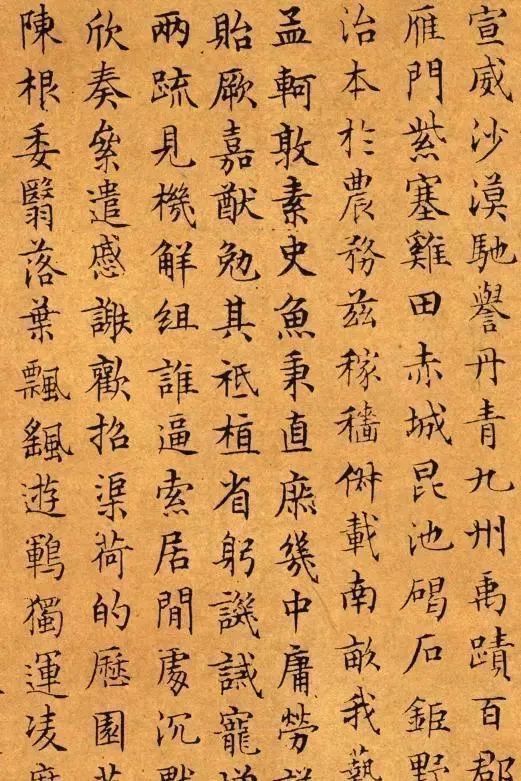 宣威沙漠馳譽丹青九州禹蹟百郡
雁門紫塞雞田赤城昆池碣石鉅野
治本於農務茲稼穡俶載南畝我藝
孟軻敦素史魚秉直庶幾中庸勞
貽厥嘉猷勉其祗植省躬譏誡寵
兩疏見機解組誰逼索居閒處沉
欣奏累遣慼謝歡招渠荷的歷園
陳根委翳落葉飄颻遊鵾獨運凌